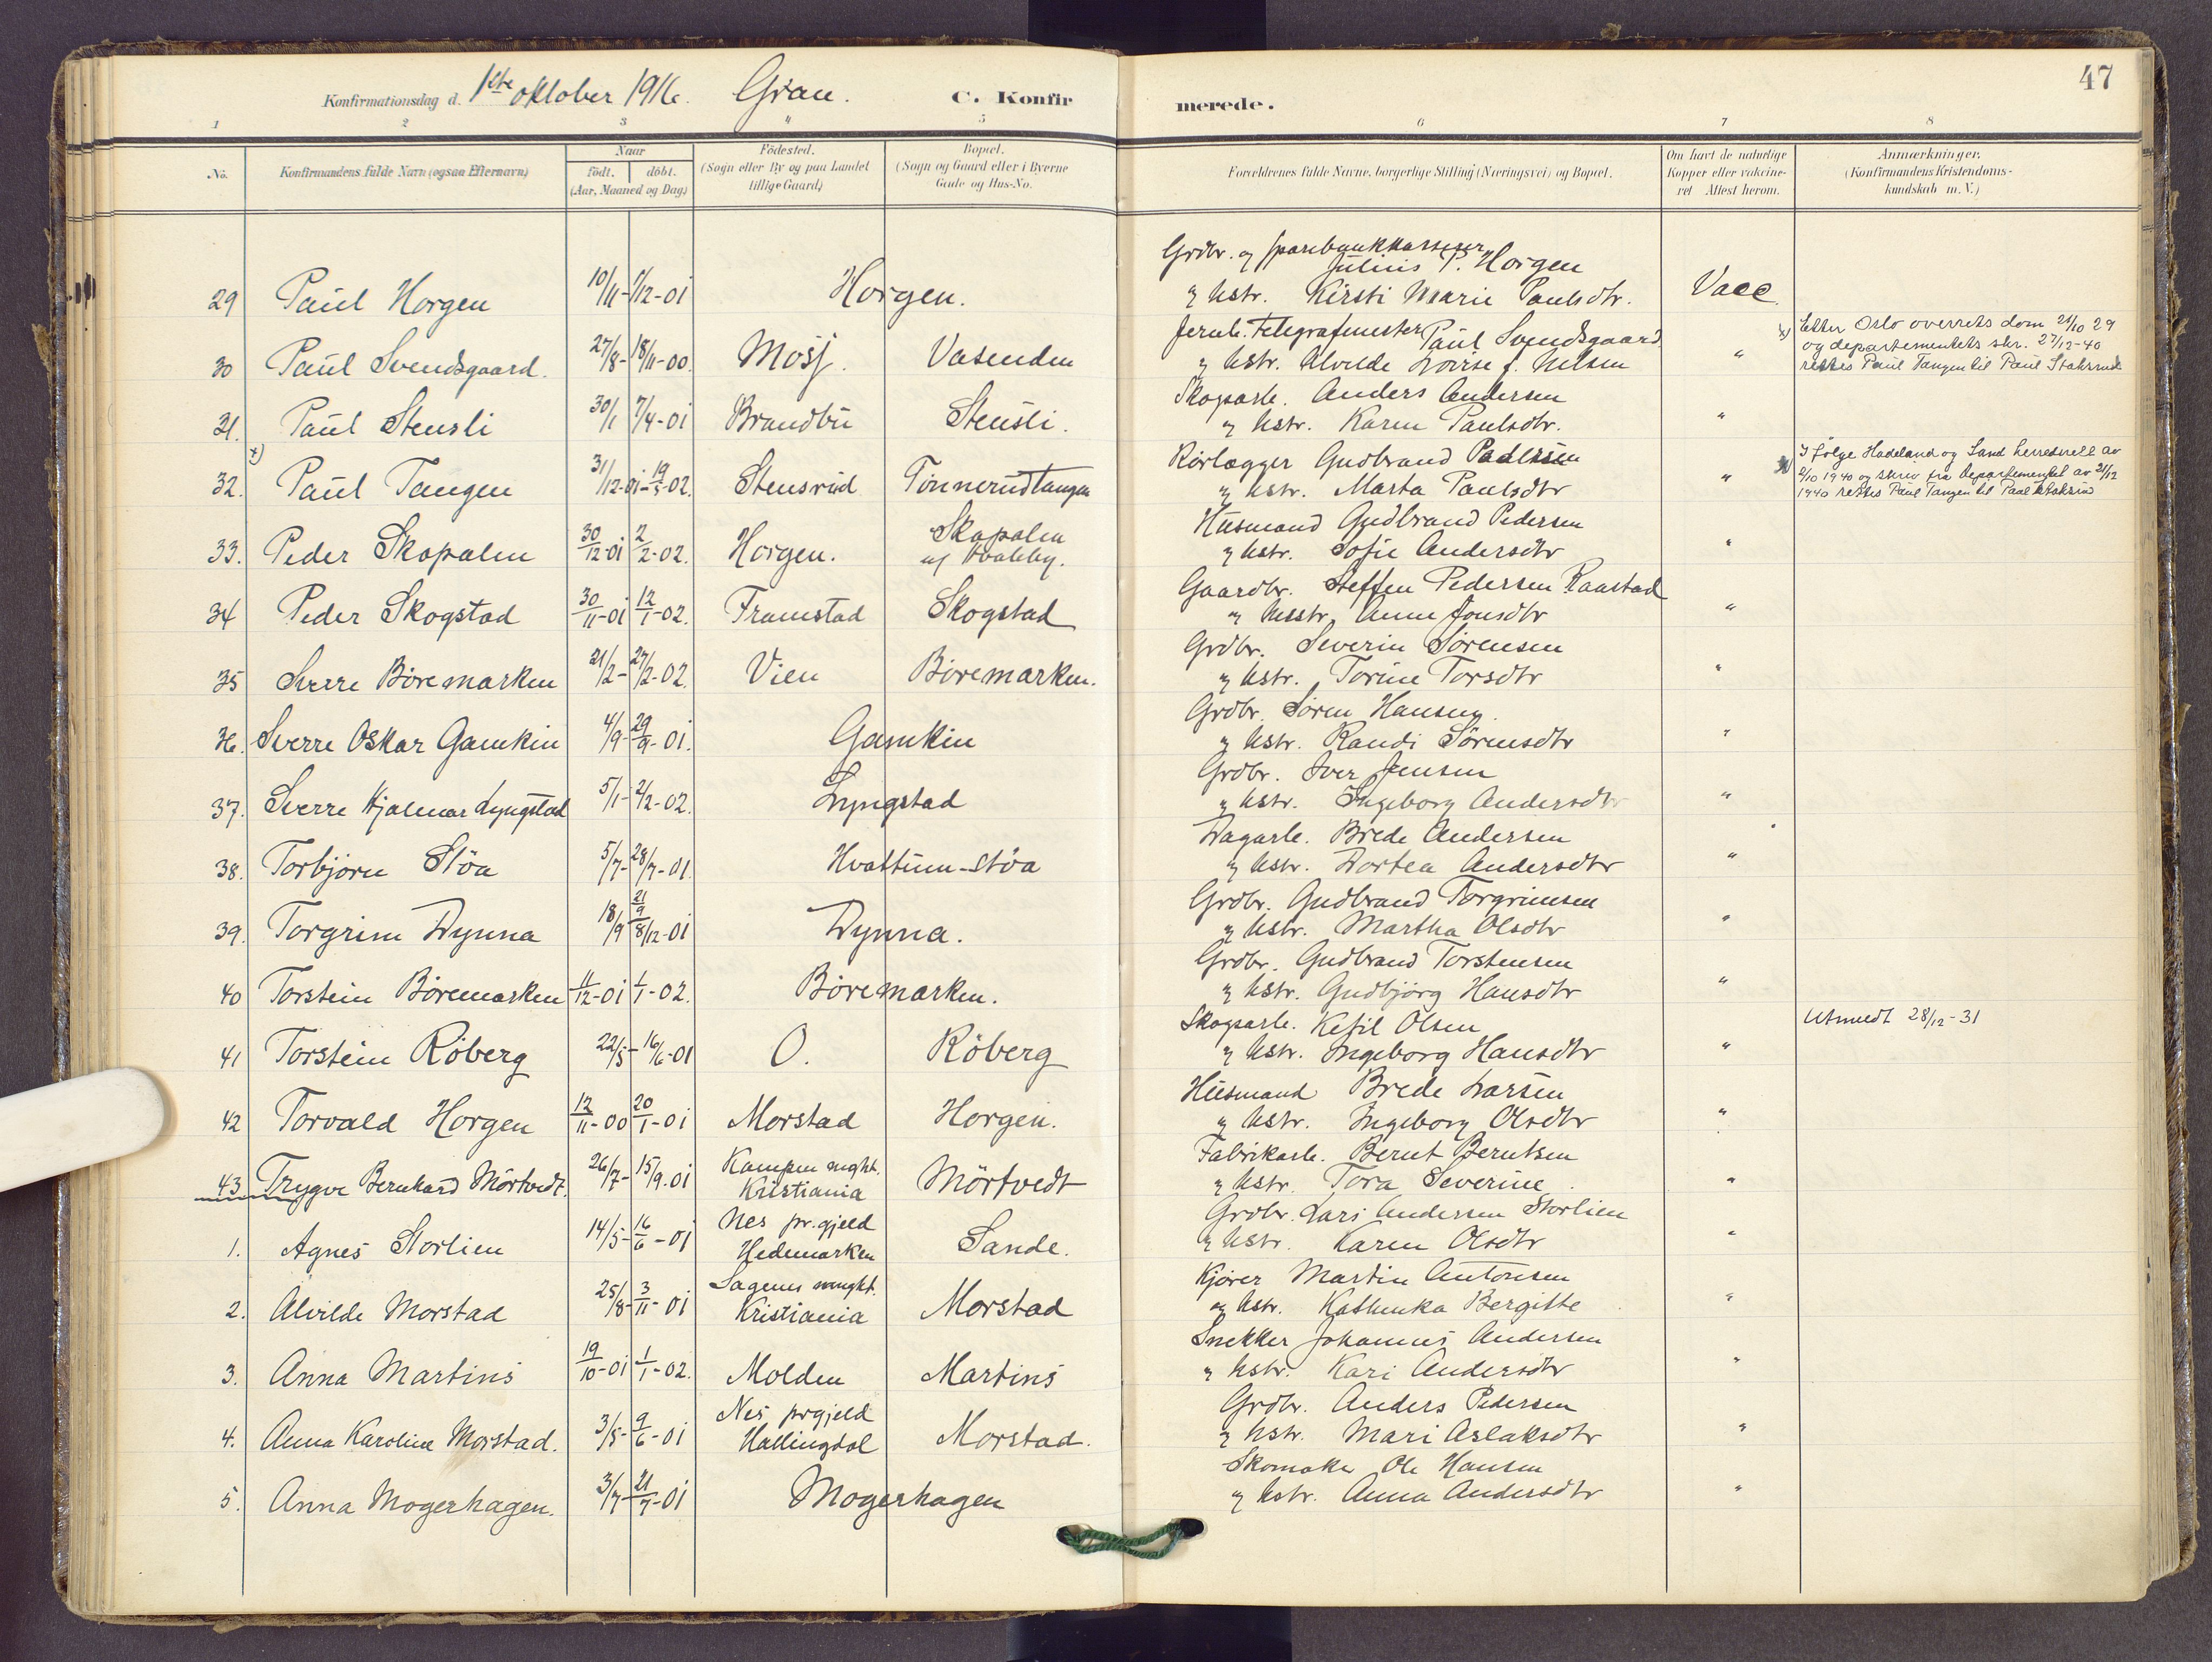 47
Konfirmationsdag d. 1ste oktober 1916. Gran. C. Konfirmerede.
1 2 3 4 5 6 7 8
No. Konfirmandens fulde Navn (ogsaa Efternavn) Naar født. døbt. (Aar, Maaned og Dag) Födested. (Sogn eller By og paa Landet tillige Gaard) Bopæl. (Sogn og Gaard eller i Byerne Gade og Hus-No. Forældrenes fulde Navne, borgerlige Stilling (Næringsvei) og Bopæl. Om havt de naturlige Kopper eller vakcineret Attest herom. Anmærkninger. (Konfirmandens Kristendomskundskab m. V.)
Grdbr. og sparebankkasserer
Julius P. Horgen
29 Paul Horgen 10/11- 1/12-01 Horgen. og hstr. Kirsti Marie Paulsdtr. Vacc.
Jernb. Telegrafmester Paul Svendsgaard
30 Paul Svendsgaard. 27/8- 18/11-00 Mosj. Vasenden og hstr. Alvilde Lovise f. Nilsen "
x) Efter Oslo overrets dom 21/10 29
og departementets skr. 27/12-40
rettes Paul Tangen til Paul Staksrud
Skogsarb. Anders Andersen
31. Paul Stensli 30/1 7/4-01 Brandbu Stensli. og hstr. Karen Paulsdtr. "
Rørlægger Gudbrand Paulsen
32. x) Paul Tangen 31/12-01- 19/5-02. Stensrud Tønnerudtangen og hstr. Marta Paulsdtr "
x) I følge Hadeland og Land herredsrett av
2/10 1940 og skriv fra Departementet av 21/12
1940 rettes Paul Tangen til Paal Staksrud
Husmand Gudbrand Pedersen
33. Peder Skapalen 30/12-01 2/2-02. Horgen. Skapalen
u/ Hvaleby. og hstr. Sofie Andersdtr "
Gaardbr. Steffen Pedersen Raastad
34 Peder Skogstad 30/11-01 12/1-02. Framstad Skogstad og husstr. Anne Jonsdtr "
Grdbr. Severin Sørensen
35 Sverre Børemarken 21/2- 27/2-02. Vien Børemarken. og hstr. Torine Torsdtr "
Grdbr. Søren Hansen
36. Sverre Oskar Gamkin 4/9- 29/9-01. Gamkin og hstr. Randi Sørensdtr "
Grdbr. Iver Jensen
37. Sverre Hjalmar Lyngstad 5/1- 2/2-02. Lyngstad og hstr. Ingeborg Andersdtr "
Dagarb. Brede Andersen
38. Torbjørn Støa 5/7- 28/7-01. Hvattum-støa og hstr. Dortea Andersdtr "
Grdbr. Gudbrand Torgrimsen
39. Torgrim Dynna 18/9 21/9 8/12-01 Dynna. og hstr. Martha Olsdtr "
Grdbr. Gudbrand Torstensen
40 Torstein Børemarken 11/12-01 1/1-02. Børemarken. og hstr. Gudbjørg Hansdtr "
Skogsarb. Ketil Olsen
41 Torstein Røberg 22/5- 16/6-01 O. Røberg og hstr. Ingeborg Hansdtr " Utmeldt 28/12-31
Husmand Brede Larsen
42 Torvald Horgen 12/11-00 20/1-01 Morstad Horgen. og hstr. Ingeborg Olsdtr "
Fabrikarb. Bernt Berntsen
43 Trygve Bernhard Mørtvedt. 26/7- 15/9.01 Kampen mght.
Kristiania Mørtvedt og hstr. Tora Severine. "
Grdbr. Lars Andersen Storlien
1. Agnes Storlien 14/5- 16/6-01 Nes pr.gjeld
Hedemarken Sande. og hstr. Karen Olsdtr "
Kjører Martin Antonsen
2. Alvilde Morstad 25/8- 3/11-01 Sagenes mnght.
Kristiania Morstad og hstr. Kathinka Bergitte "
Snekker Johannes Andersen
3. Anna Martins 19/10-01 1/1-02. Molden Martins og hstr. Kari Andersdtr "
Grdbr. Anders Pedersen
4. Anna Karoline Morstad. 3/5- 9/6-01 Nes prgjeld
Hallingdal Morstad. og hstr. Mari Aslaksdtr "
Skomaker Ole Hansen
5. Anna Mogerhagen. 3/7- 21/7-01 Mogerhagen og hstr. Anna Andersdtr "